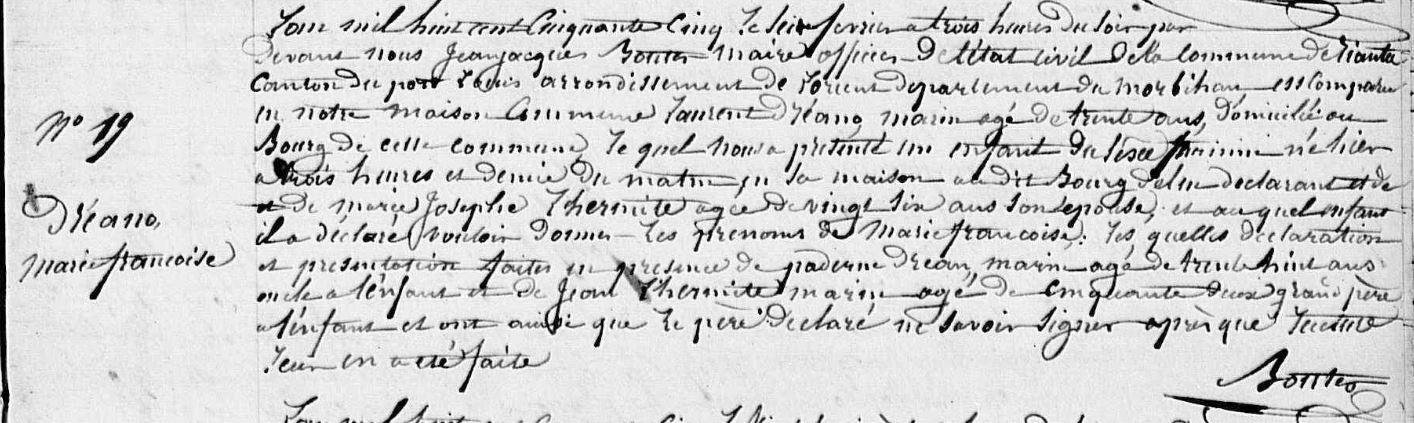 L'an mil huit cent Cinquante Cinq le seize fevrier a trois heures du soir par
devant nous Jean jacques Bontes maire officier de l'état civil de la commune de Rianta
Canton du port Louis arrondissement de Lorient departement du morbihan est comparu
en notre maison Commune Laurent Dréano marin agé de trente ans, domicilié au
N° 19
Bourg de cette commune, le quel nous a présenté un enfant du sexe féminin né hier
a trois heures et demie du matin en sa maison au dit Bourg de lui declarant et de
et de marie Josephe Thermite agee de vingt six ans son epouse, et au quel enfant
Dréano,
il a déclaré vouloir donner les prenoms de Marie francoise. les quelles declaration
marie francoise
et presentation faites en presence de paderne Drean, marin agé de trente huit ans
oncle a l'enfant et de Jean Thermite marin agé de cinquante deux grand père
a l'enfant et ont ainsi que le pere declaré ne savoir signer après que lecture
leur en a été faite
Bontes
L'an mil huit